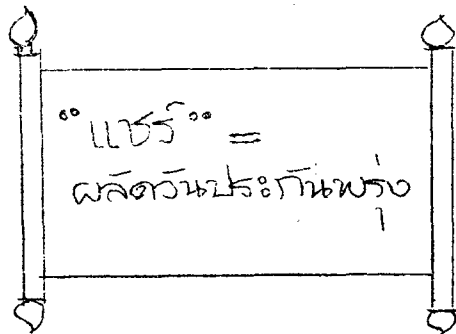 "แชร์" =
ผลัดวันประกันพรุ่ง